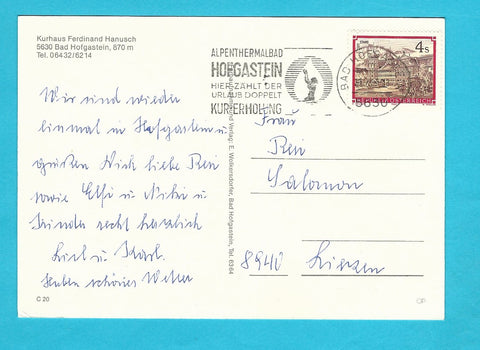 Kurhaus Ferdinand Hanusch
5630 Bad Hofgastein, 870 m
Tel. 06432/6214
ALPENTHERMALBAD
HOFGASTEIN
HIER ZÄHLT DER
URLAUB DOPPELT
KUR-ERHOLUNG
BAD HOFG
5630
4 S
REPUBLIK ÖSTERREICH
Wir sind wieder
einmal in Hofgastein u
grüßen Dich liebe Resi
sowie Elfi u Niki u
Kinder recht herzlich
Liesl u Karl.
Haben schönes Wetter
Frau
Resi
Salomon
8940 Liezen
Verlag: E. Wolkersdorfer, Bad Hofgastein, Tel. 6364
C 20